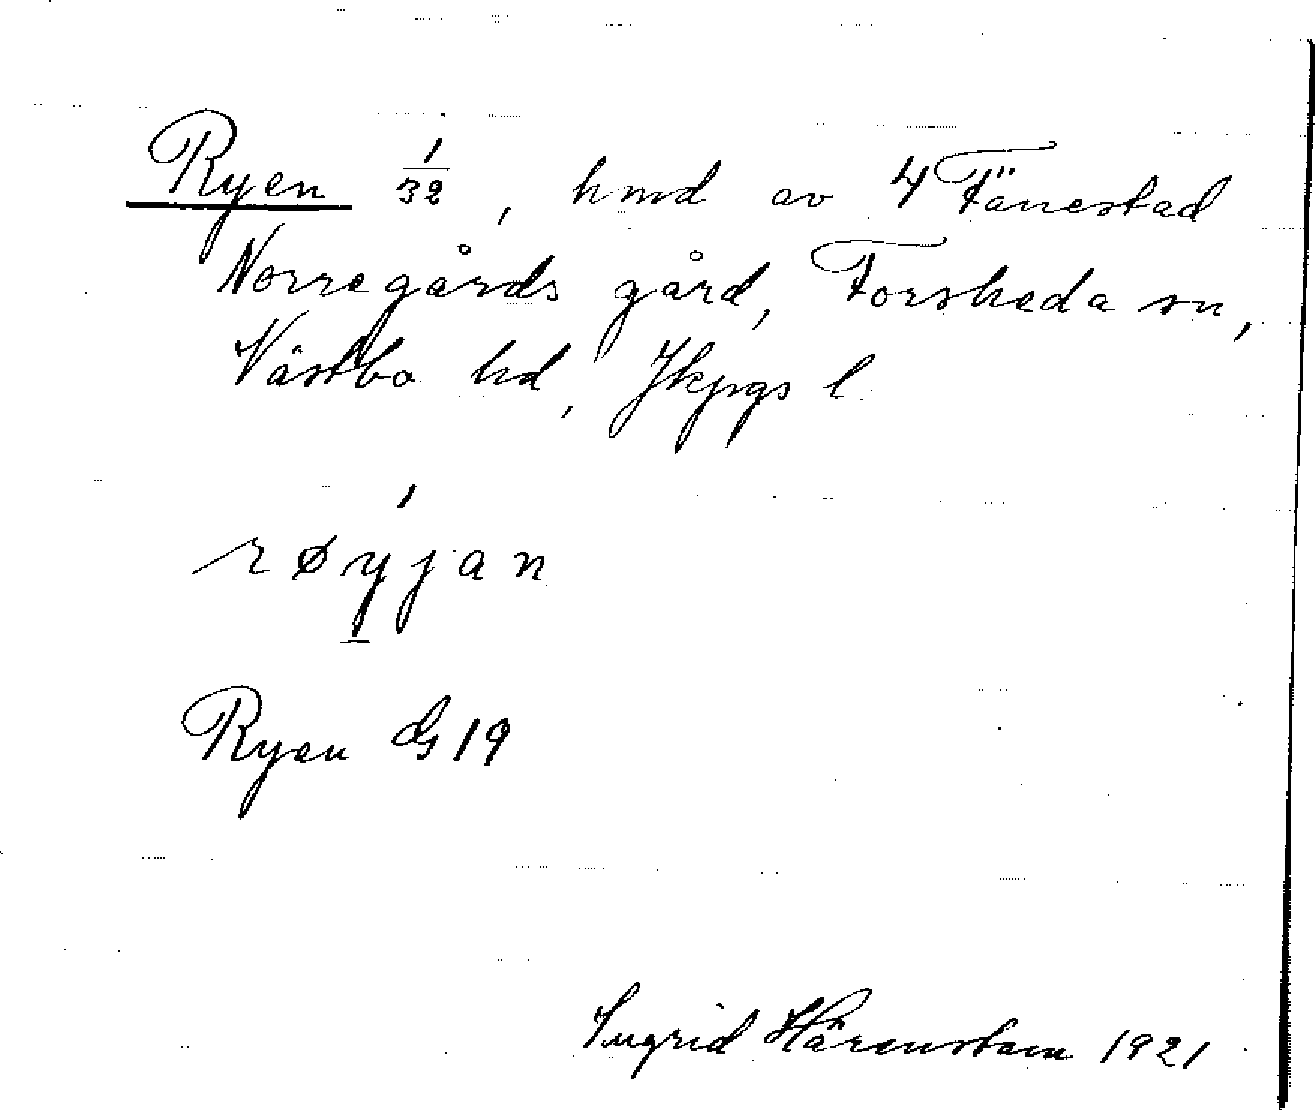 Ryen 1/32, hmd av 4 Tänestad
Norregårds gård, Forsheda sn,
Västbo hd, Jkpgs l.
røyjan
Ryen G 19
Ingrid Härenstam 1921